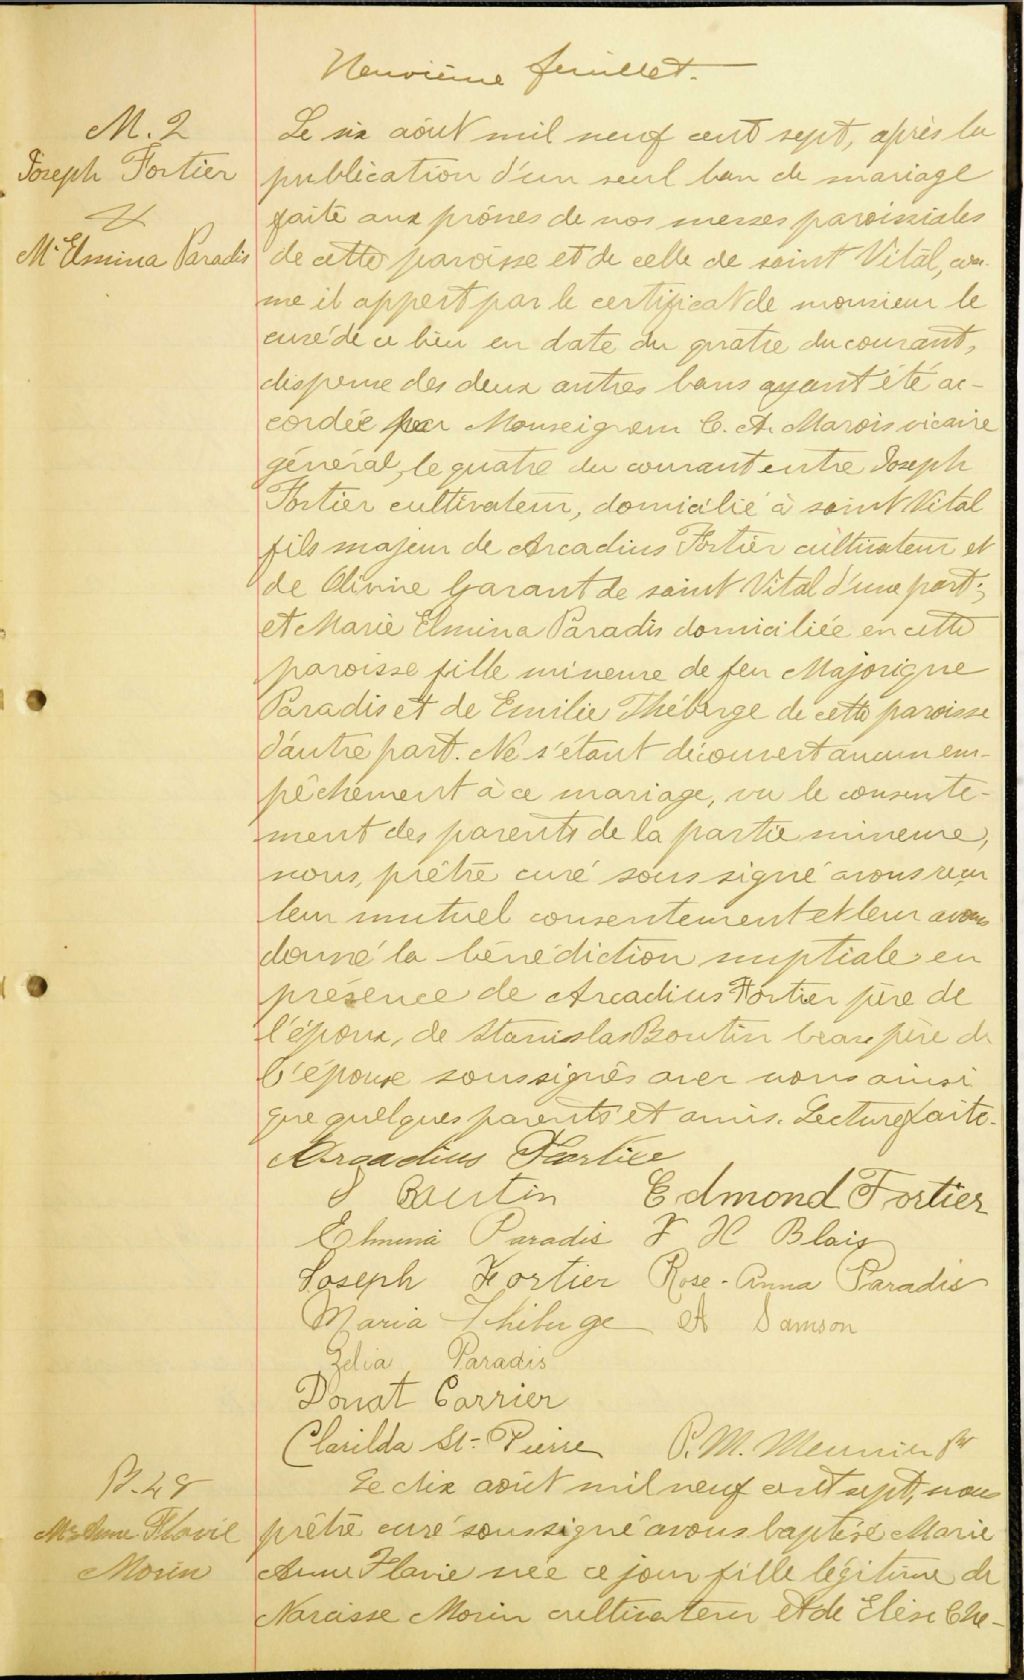 Neuvième feuillet.
M. 2
Joseph Fortier
&
Mie Elmina Paradis
Le six août mil neuf cent sept, après la
publication d'un seul ban de mariage
faite aux prônes de nos messes paroissiales
de cette paroisse et de celle de saint Vital, com-
me il appert par le certificat de monsieur le
curé de ce lieu en date du quatre du courant,
dispense des deux autres bans ayant été ac-
cordée par Monseigneur C. A. Marois vicaire
général, le quatre du courant entre Joseph
Fortier cultivateur, domicilié à saint Vital
fils majeur de Arcadius Fortier cultivateur et
de Olivine Garant de saint Vital d'une part;
et Marie Elmina Paradis domiciliée en cette
paroisse fille mineure de feu Majorique
Paradis et de Emilie Théberge de cette paroisse
d'autre part. Ne s'étant découvert aucun em-
pêchement à ce mariage, vu le consente-
ment des parents de la partie mineure,
nous, prêtre curé soussigné avons reçu
leur mutuel consentement et leur avons
donné la bénédiction nuptiale en
présence de Arcadius Fortier père de
l'époux, de Stanislas Boutin beau père de
l'épouse soussignés avec nous ainsi
que quelques parents et amis. Lecture faite.
Arcadius Fortier
S Boutin Edmond Fortier
Elmina Paradis F X Blais
Joseph Fortier Rose-Anna Paradis
Maria Théberge A Samson
Zelia Paradis
Donat Carrier
Clarilda St-Pierre P. M. Meunier Ptr
B. 48
Mie Anne Flavie
Morin
Le dix août mil neuf cent sept, nous
prêtre curé soussigné avons baptisé Marie
Anne Flavie née ce jour fille légitime de
Narcisse Morin cultivateur et de Elise Che-